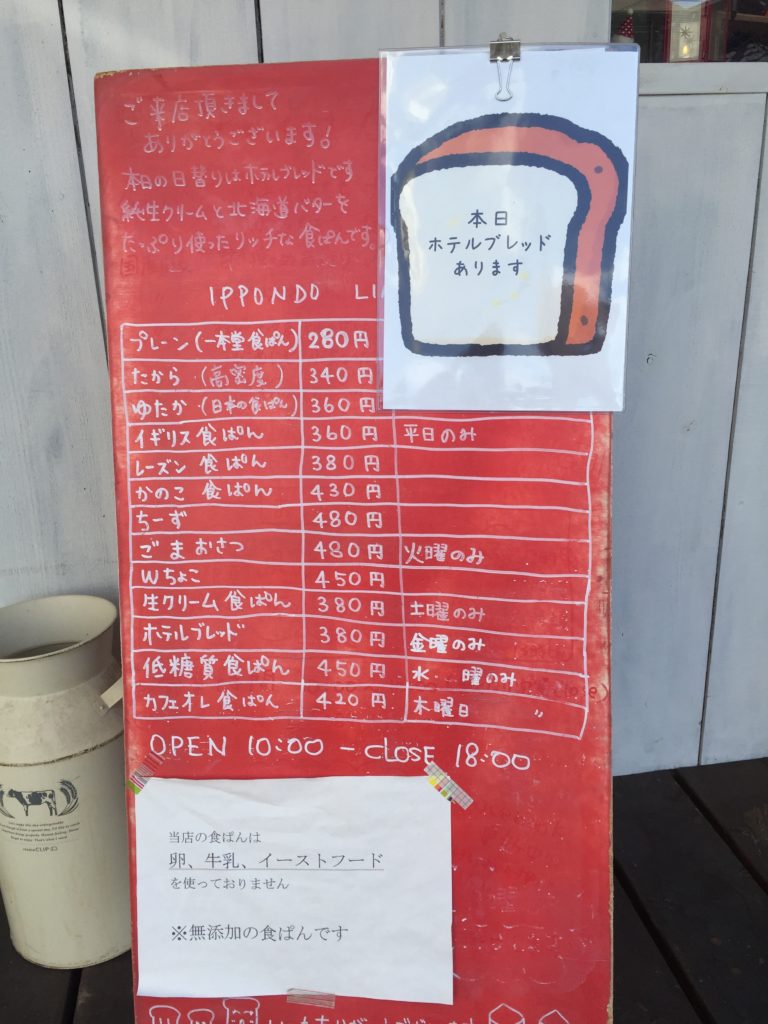 ご来店頂きまして
ありがとうございます!
本日の日替りはホテルブレッドです
純生クリームと北海道バターを
たっぷり使ったリッチな食ぱんです。
本日
ホテルブレッド
あります
IPPONDO
プレーン(一本堂食ぱん) 280円
たから (高密度) 340円
ゆたか (日本の食ぱん) 360円
イギリス食ぱん 360円 平日のみ
レーズン 食ぱん 380円
かのこ 食ぱん 430円
ちーず 480円
ごまおさつ 480円 火曜のみ
Wちょこ 450円
生クリーム食ぱん 380円 土曜のみ
ホテルブレッド 380円 金曜のみ
低糖質食ぱん 450円 水 曜のみ
カフェオレ食ぱん 420円 木曜日 〃
OPEN 10:00 - CLOSE 18:00
当店の食ぱんは
卵、牛乳、イーストフード
を使っておりません
※無添加の食ぱんです